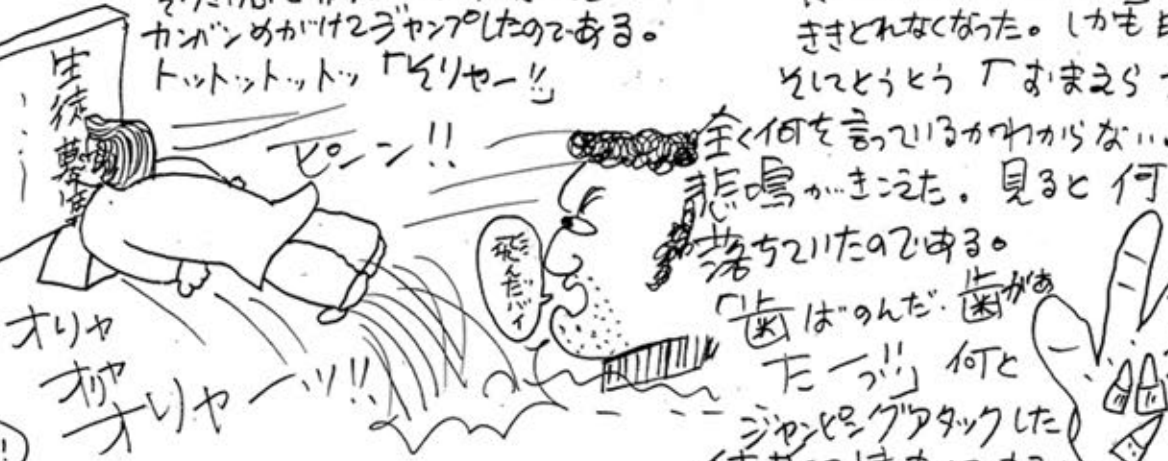 カンバンめがけてジャンプしたのである。
トットットットッ「そりゃー!!
生徒募集
ピーン!!
飛んだバイ
オリャ
オリャ
オリャーッ!!
ききとれなくなった。しかも
そしてとうとう「おまえら
全く何を言っているかわからない。
悲鳴がきこえた。見ると何
落ちていたのである。
「歯ばのんだ.歯があ
たーっ!!」何と
ジャンピングアタックした